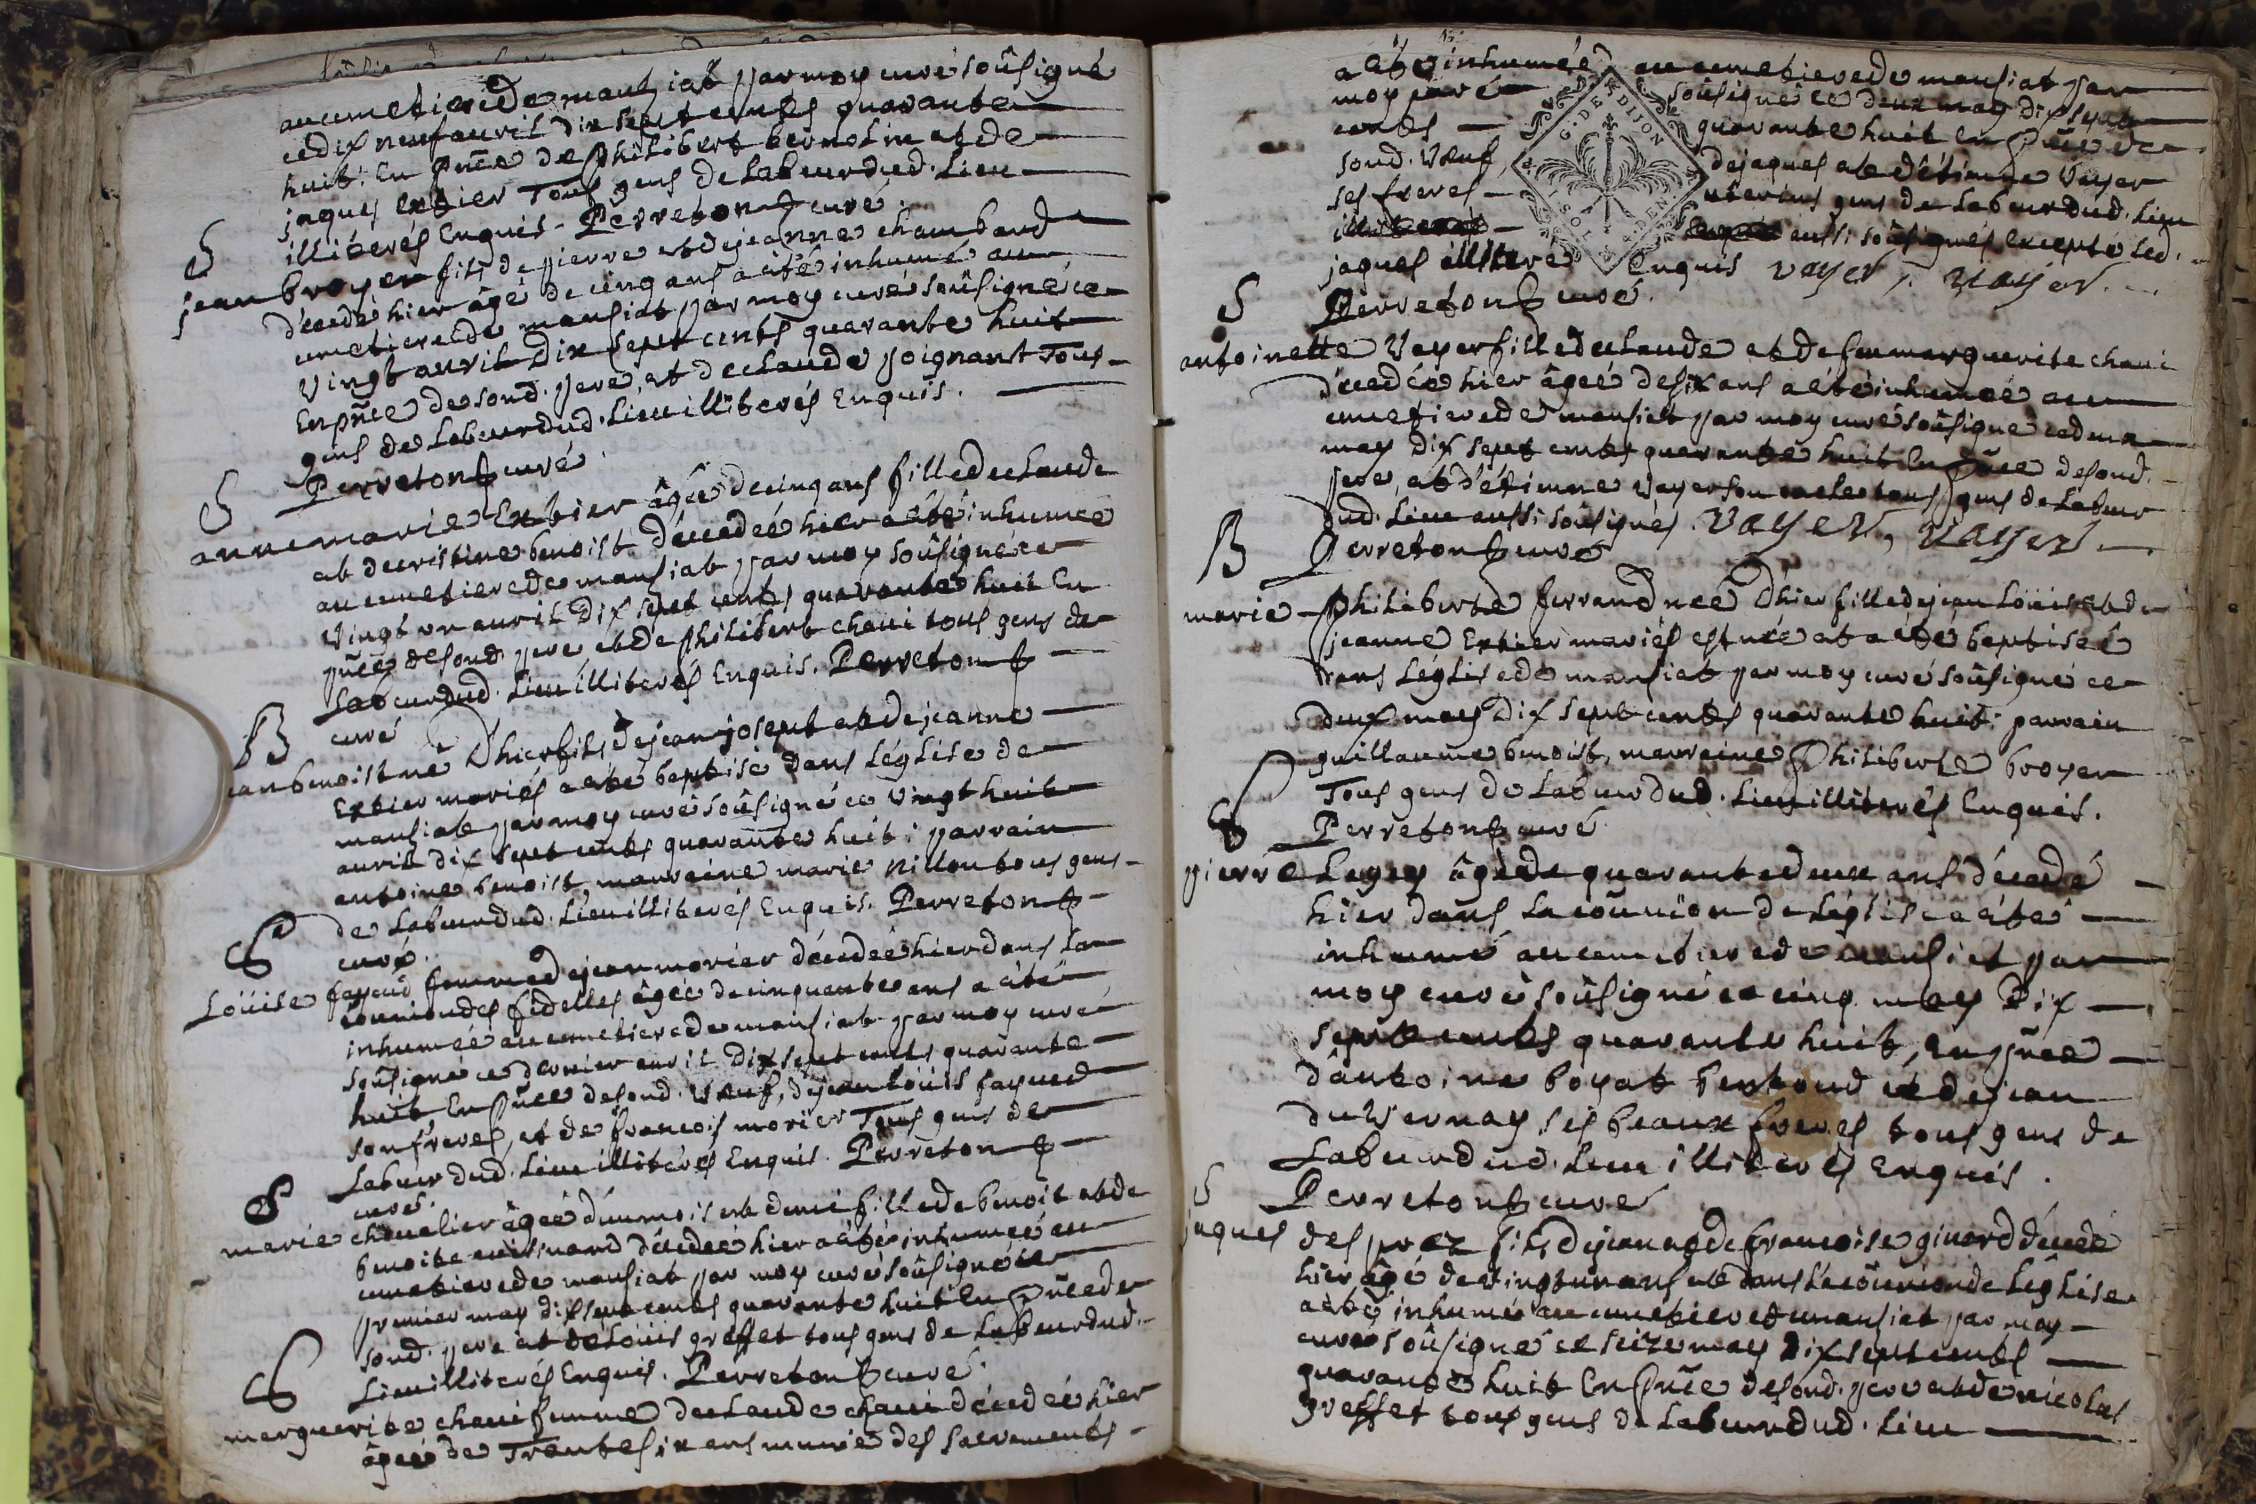 au cmetiere de mansiat par moy curé soûsigné
ce dix neuf avril dix sept cents quarante
huit. En pñce de philibert bernolin et de
jaques Extier Tous gens de Labeur dud. Lieu
illiterés Enquis. Perreton curé.
S
jean broyer fils de pierre et de jeanne chambaud
décedé hier âgé de cinq ans a été inhumé au
cmetiere de mansiat par moy curé soûsigné ce
vingt avril dix sept cents quarante huit
En pñce de sond. pere, et de claude poignant Tous
gens de Labeur dud. Lieu illiterés Enquis.
Perreton curé
S
anne marie Extier âgée de cinq ans fille de claude
et de cristine benoist décedée hier a été inhumée
au cmetiere de mansiat par moy soûsigné ce
vingt un avril dix sept cents quarante huit En
pñce de sond. pere et de philibert chavi tous gens de
Labeur dud. Lieu illiterés Enquis. Perreton
curé
B
jean benoist né d'hier fils de jean joseph et de jeanne
Extier mariés a été baptisé dans Léglise de
mansiat par moy curé soûsigné ce vingt huit
avril dix sept cents quarante huit: parrain
antoine benoist, marreine marie nillon tous gens
de Labeur dud. Lieu illiterés Enquis. Perreton
curé.
Loüise fayeud femme de jean morier décedée hier dans la
coũnion des fidelles âgée de cinquante ans a été
inhumée au cmetiere de mansiat par moy curé
soûsigné ce dernier avril dix sept cents quarante
huit En pñce de sond. veuf, de jean Loüis fayeud
son frere, et de francois morier Tous gens de
Labeur dud. Lieu illiterés Enquis. Perreton
curé.
S
marie chevalier âgée d'un mois et demi fille de benoit et de
benoite décedée hier a été inhumée au
cmetiere de mansiat par moy curé soûsigné ce
premier may dix sept cents quarante huit En pñce de
sond. pere et de Loüis greffet tous gens de Labeur dud.
Lieu illiterés Enquis. Perreton curé.
marguerite chavi femme de claude décedée hier
âgée de Trente six ans munie des sacrements
a été inhumée au cmetiere de mansiat par
moy curé soûsigné ce deux may dix sept
cents quarante huit En pñce de
sond. veuf, de jaques et d'étienne vayer
ses freres uterins gens de Labeur dud. Lieu
aussi soûsignés excepté led.
jaques illiteré Enquis vayer, vayer.
G. DE DIJON
SOL
Perreton curé.
S
antoinette vayer fille de claude et de feu marguerite chavi
décedée hier âgée de six ans a été inhumée au
cmetiere de mansiat par moy curé soûsigné ce deux
may dix sept cents quarante huit En pñce de sond.
pere, et d'étienne vayer son oncle tous gens de Labeur
dud. Lieu aussi soûsignés. vayer, vayer
Perreton curé
B
marie philiberte ferrand née d'hier fille de jean Loüis et de
jeanne Extier mariés est née et a été baptisée
dans Léglise de mansiat par moy curé soûsigné ce
deux may dix sept cents quarante huit: parrain
guillaume benoist, marreine philiberte broyer
Tous gens de Labeur dud. Lieu illiterés Enquis.
Perreton curé
pierre Legey âgé de quarante deux ans décedé
hier dans la coũnion de Léglise a été
inhumé au cmetiere de mansiat par
moy curé soûsigné ce cinq may dix
sept cents quarante huit, En pñce
d'antoine boyat et de jean
duvernay, ses beaux freres tous gens de
Labeur dud. Lieu illiterés Enquis.
Perreton curé
S
jaques des prez fils de jean et de francoise givord décedé
hier âgé de vingt un ans et dans la coũnion de Léglise
a été inhumé au cmetiere de mansiat par moy
curé soûsigné ce seize may dix sept cents
quarante huit En pñce de sond. pere et de nicolas
greffet tous gens de Labeur dud. Lieu